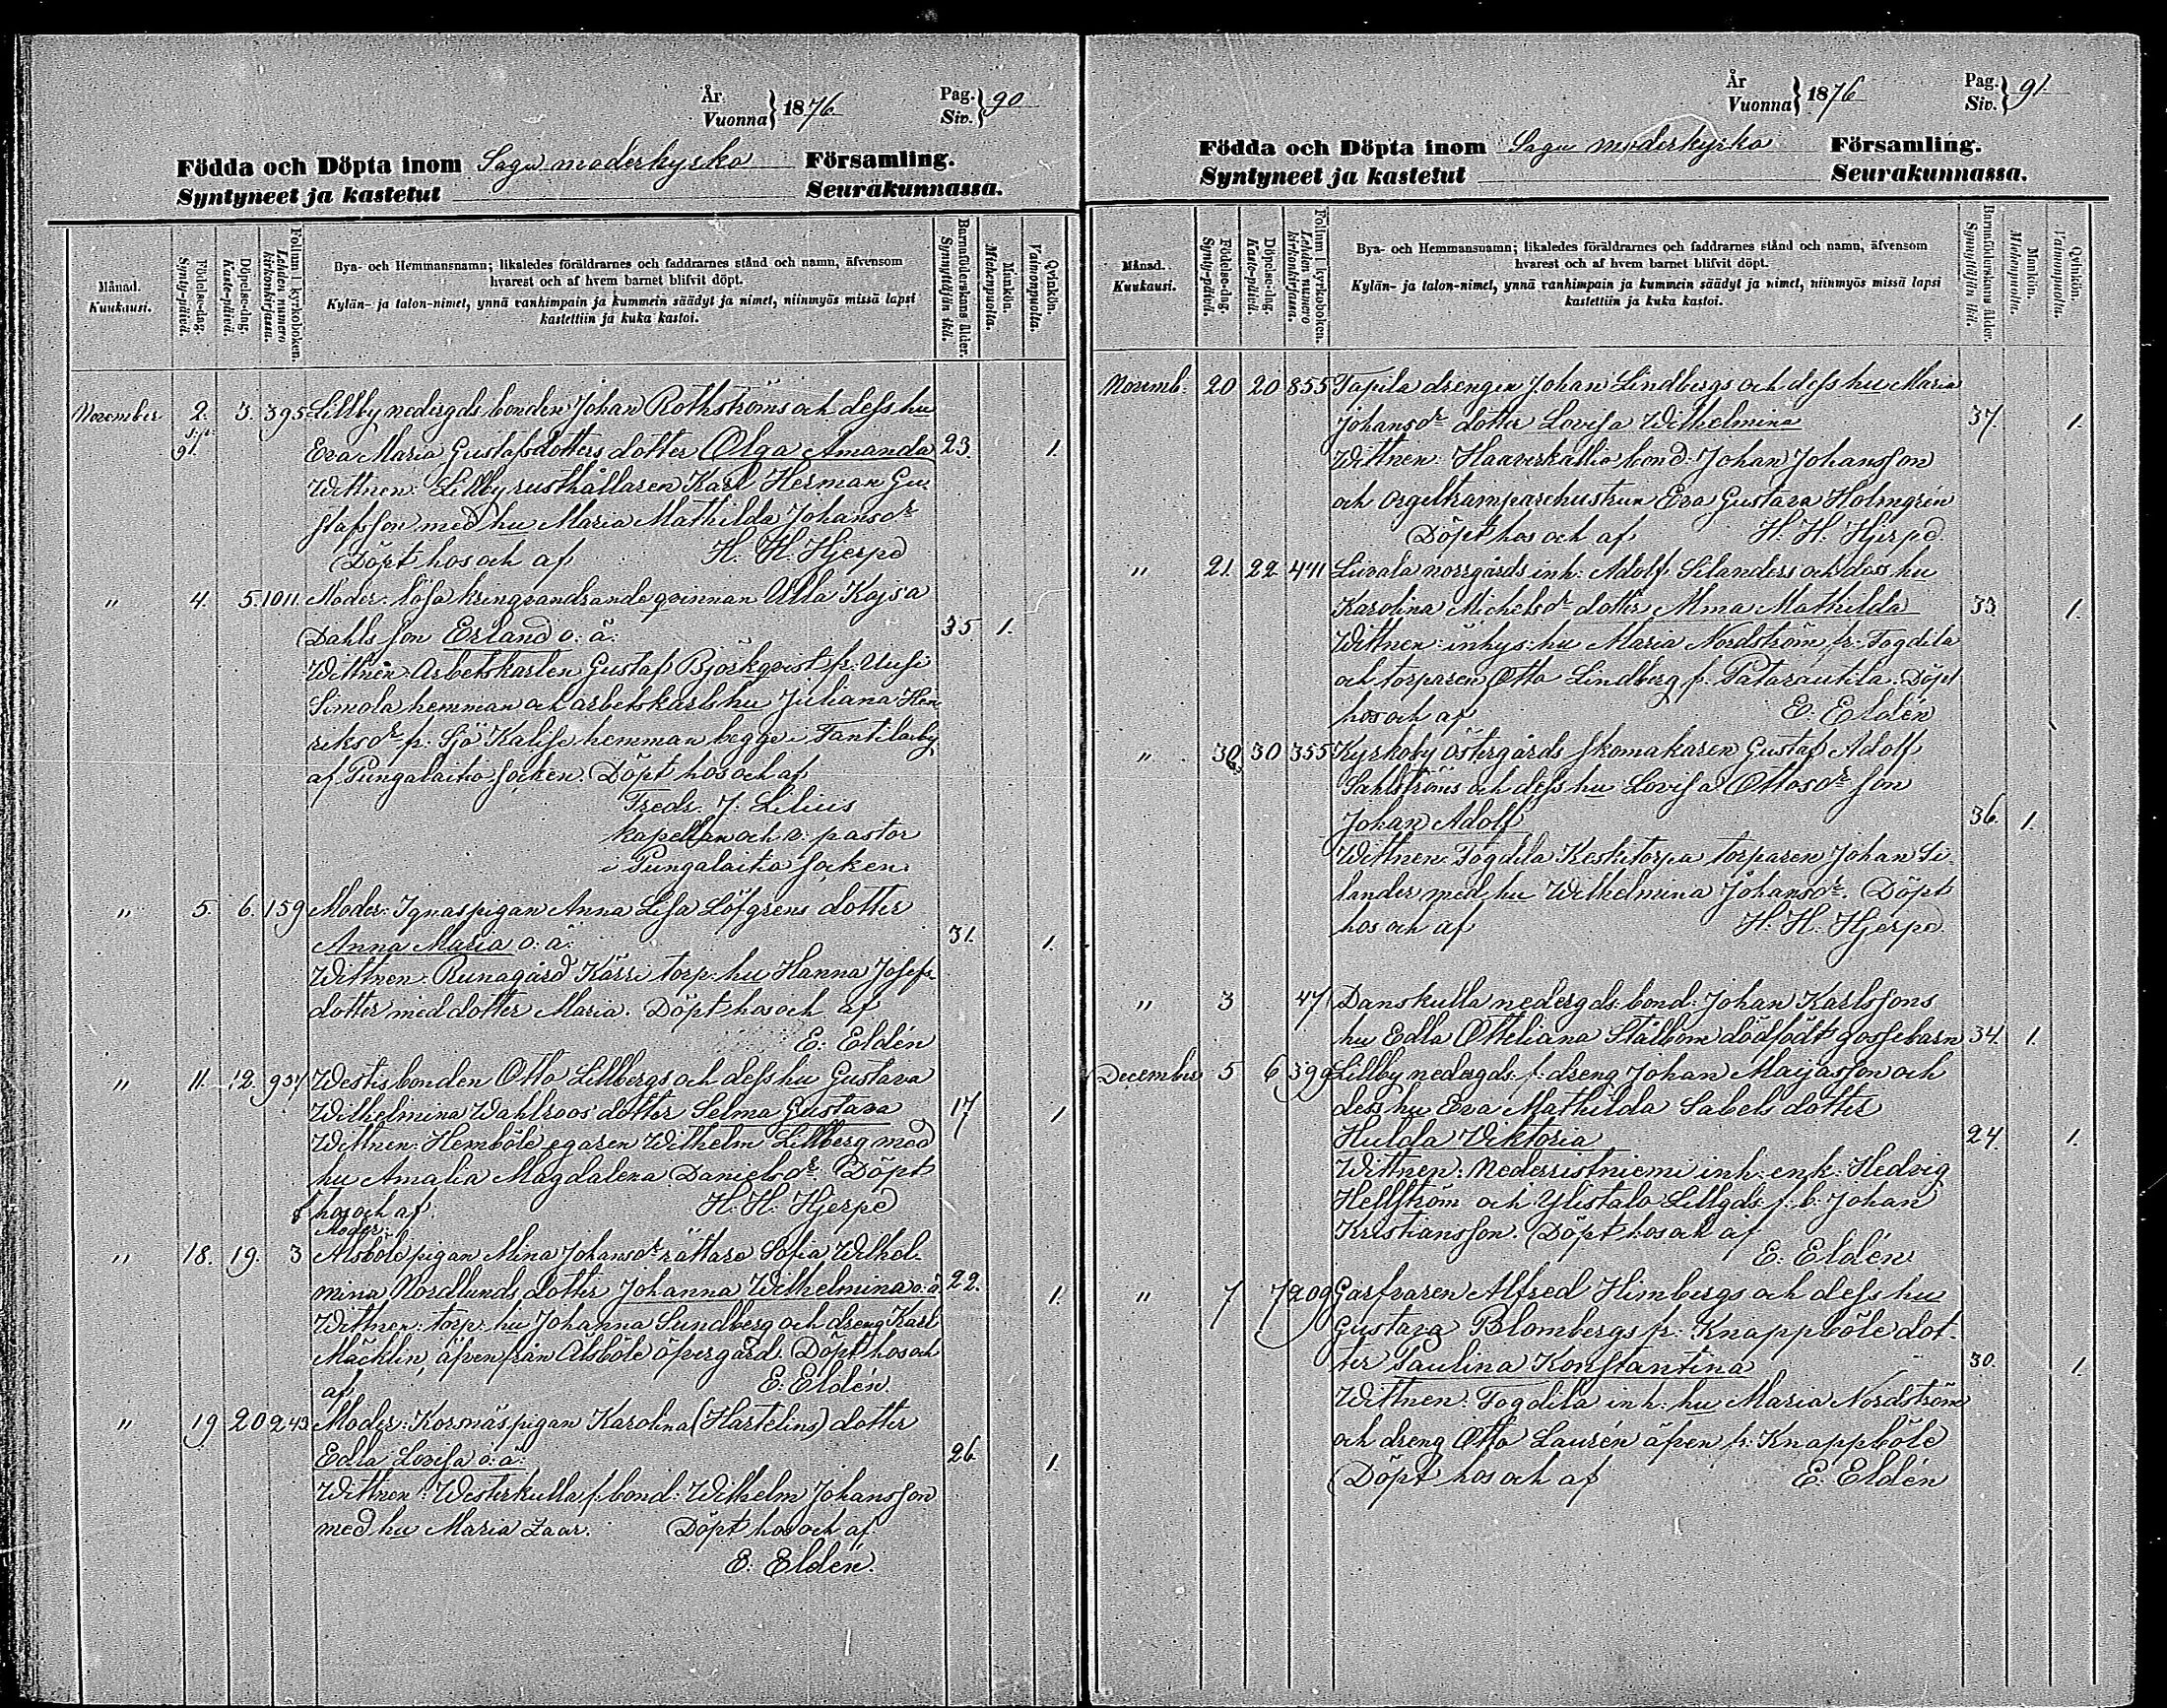 År
Vuonna } 1876.
Pag.
Siv. } 90
Födda och Döpta inom Sagu moderkyrko Församling.
Syntyneet ja kastetut Seurakunnassa.
Månad.
Kuukausi.
Födelse-dag.
Synty-päivä.
Döpelse-dag.
Kaste-päivä.
Folium i kyrkoboken.
Lehden numero kirkonkirjassa.
Bya- och Hemmansnamn; likaledes föräldrarnes och faddrarnes stånd och namn, äfvensom
hvarest och af hvem barnet blifvit döpt.
Kylän- ja talon-nimet, ynnä vanhimpain ja kummein säädyt ja nimet, niinmyös missä lapsi
kastettiin ja kuka kastoi.
Barnaföderskans ålder.
Synnyttäjän ikä.
Mankön.
Miehenpuolta.
Qvinkön.
Vaimonpuolta.
November 2. 3. 395 Lillby nedergds bonden Johan Rothströms och dess hu
Eva Maria Gustafsdotters dotter Olga Amanda 23. 1.
Wittnen: Lillby rusthållaren Karl Herman Gu-
stafsson med hu Maria Mathilda Johansdr
Döpt hos och af H. H. Hjerpe
" 4. 5. 1011. Moder: lösa kringvandrande qvinnan Ulla Kajsa
Dahls son Erland o: ä: 35 1.
Wittnen: Arbetskarlen Gustaf Björkqvist fr: Uusi
Simola hemman och arbetskarls hu Juliana Hen
riksdr fr: Sjö Kalise hemman begge i Tantilaby
af Pungalaitio socken. Döpt hos och af
Fredr. J. Lilius
kapellan och v: pastor
i Pungalaitio socken.
" 5. 6. 159 Moder: Ignaspigan Anna Lisa Löfgrens dotter
Anna Maria o: ä: 31. 1.
Wittnen: Runagård Kärri torp: hu Hanna Josefs-
dotter med dotter Maria. Döpt hos och af
E: Eldén
" 11. 12. 937 Westis bonden Otto Lillbergs och dess hu Gustava
Wilhelmina Wahlroos' dotter Selma Gustava 17 1
Wittnen: Hemböle egaren Wilhelm Lillberg med
hu Amalia Magdalena Danielsdr. Döpt
hos och af. H. H. Hjerpe
Moder:
" 18. 19. 3 Alsböle pigan Mina Johansdr rättare Sofia Wilhel-
mina Nordlunds dotter Johanna Wilhelmina o: ä 22. 1.
Wittnen: torp: hu Johanna Sundberg och dreng Karl
Mäcklin, äfven från Alsböle öfvergård. Döpt hos och
af E: Eldén.
" 19 20 243 Moder: Korsnäspigan Karolina (Hartelins) dotter
Edla Lovisa o: ä: 26. 1.
Wittnen: Westerkulla f. bond: Wilhelm Johansson
med hu Maria Zaar. Döpt hos och af
E: Eldén.
År
Vuonna } 1876
Pag.
Siv. } 91.
Födda och Döpta inom Sagu moderkyrko Församling.
Syntyneet ja kastetut Seurakunnassa.
Månad.
Kuukausi.
Födelse-dag.
Synty-päivä.
Döpelse-dag.
Kaste-päivä.
Folium i kyrkoboken.
Lehden numero kirkonkirjassa.
Bya- och Hemmansnamn; likaledes föräldrarnes och faddrarnes stånd och namn, äfvensom
hvarest och af hvem barnet blifvit döpt.
Kylän- ja talon-nimet, ynnä vanhimpain ja kummein säädyt ja nimet, niinmyös missä lapsi
kastettiin ja kuka kastoi.
Barnaföderskans ålder.
Synnyttäjän ikä.
Mankön.
Miehenpuolta.
Qvinkön.
Vaimonpuolta.
Novemb. 20 20 855 Tapila drengen Johan Lindbergs och dess hu Maria
Johansdr dotter Lovisa Wilhelmina 37. 1.
Wittnen: Haaviskallio bond: Johan Johansson
och orgeltramparehustrun Eva Gustava Holmgrén
Döpt hos och af H. H. Hjerpe
" 21. 22 471 Luvala norrgårds inh: Adolf Silanders och dess hu
Karolina Michelsdr dotter Alma Mathilda 33. 1.
Wittnen: inhys: hu Maria Nordström, fr: Fogdila
och torparen Otto Lindberg fr: Patarautila. Döpt
hos och af E: Eldén
" 30 30 355 Kyrkoby östergårds skomakaren Gustaf Adolf
Sahlströms och dess hu Lovisa Ottosdr son
Johan Adolf 36. 1.
Wittnen: Fogdila Keskitorpa torparen Johan Si-
lander med hu Wilhelmina Johansdr. Döpt
hos och af H. H. Hjerpe.
" 3 47 Danskulla nedergds bond: Johan Karlssons
hu Edla Otteliana Stålbom dödfödt gossebarn 34. 1.
December 5 6 399 Lillby nedergds: f. dreng Johan Maijasson och
dess hu Eva Mathilda Sabels dotter
Hulda Viktoria 24. 1.
Wittnen: Nederristniemi inh: enk: Hedvig
Hellström och Ylistalo Lillgds: f. b. Johan
Kristiansson. Döpt hos och af
E: Eldén.
" 7 7 209 Garfvaren Alfred Himbergs och dess hu
Gustava Blombergs fr: Knappböle dot-
ter Paulina Konstantina 30. 1.
Wittnen: Fogdila inh: hu Maria Nordström
och dreng Otto Laurén äfven fr: Knappböle
Döpt hos och af E: Eldén